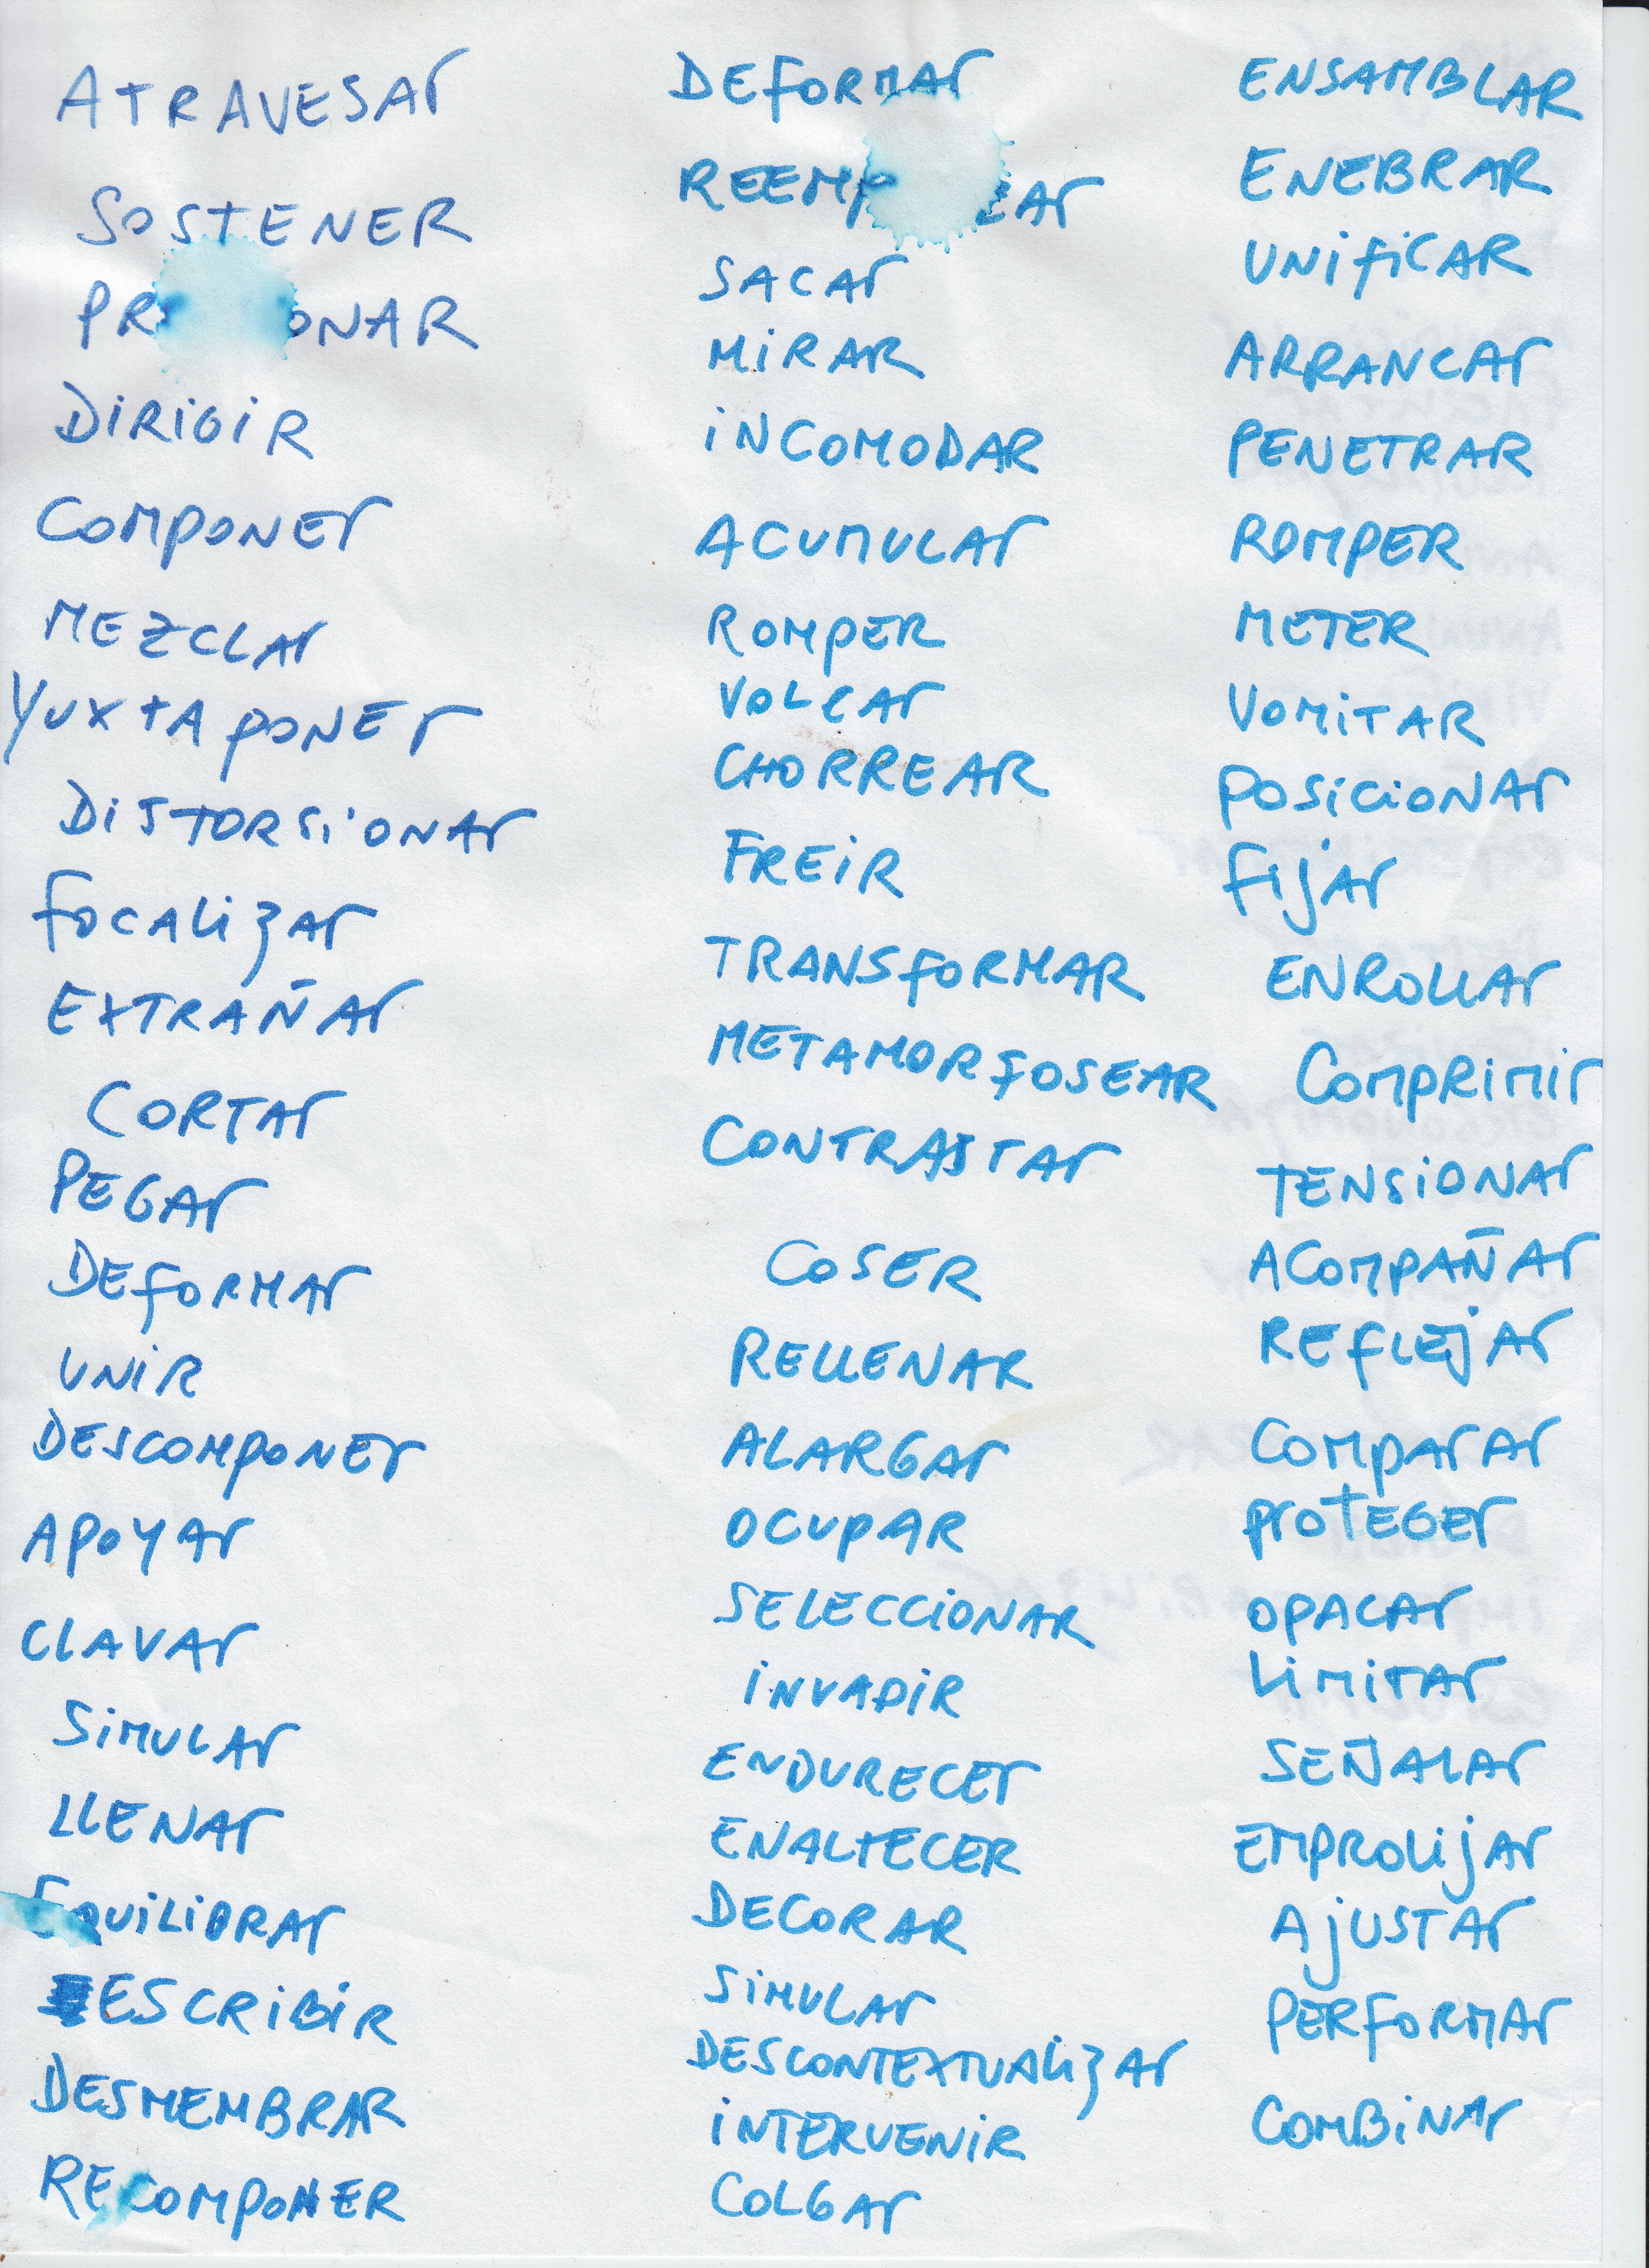 ATRAVESAr
SOSTENER
DiRiGiR
COMPONEr
MEZCLAr
YUXTAPONEr
DiSTORSiONAr
fOCALizAr
EXTRAÑAr
CORTAr
PEGAr
DEfORMAr
UNiR
DESCOMPONEr
APOYAr
CLAVAr
SiMULAr
LLENAr
EQUiLiBRAr
ESCRiBiR
DESMEMBRAR
RECOMPONER
DEfORMAr
SACAr
MiRAR
iNCOMODAR
ACUMULAr
ROMPER
VOLCAr
CHORREAR
FREiR
TRANSfORMAR
METAMORfOSEAR
CONTRASTAr
COSER
RELLENAR
ALARGAr
OCUPAR
SELECCiONAR
iNVADiR
ENDURECEr
ENALTECER
DECORAR
SiMULAr
DESCONTEXTUALizAr
iNTERVENiR
COLGAr
ENSAMBLAR
ENEBRAR
UNifiCAR
ARRANCAr
PENETRAR
ROMPER
METER
VOMiTAR
POSiCiONAr
fijAr
ENROLLAr
COMPRiMir
TENSiONAr
ACOMPAÑAr
REfLEjAr
COMPArAr
PrOTEGEr
OPACAr
LiMiTAr
SEÑALAr
EMPROLijAr
AjUSTAr
PERfORMAr
COMBiNAr